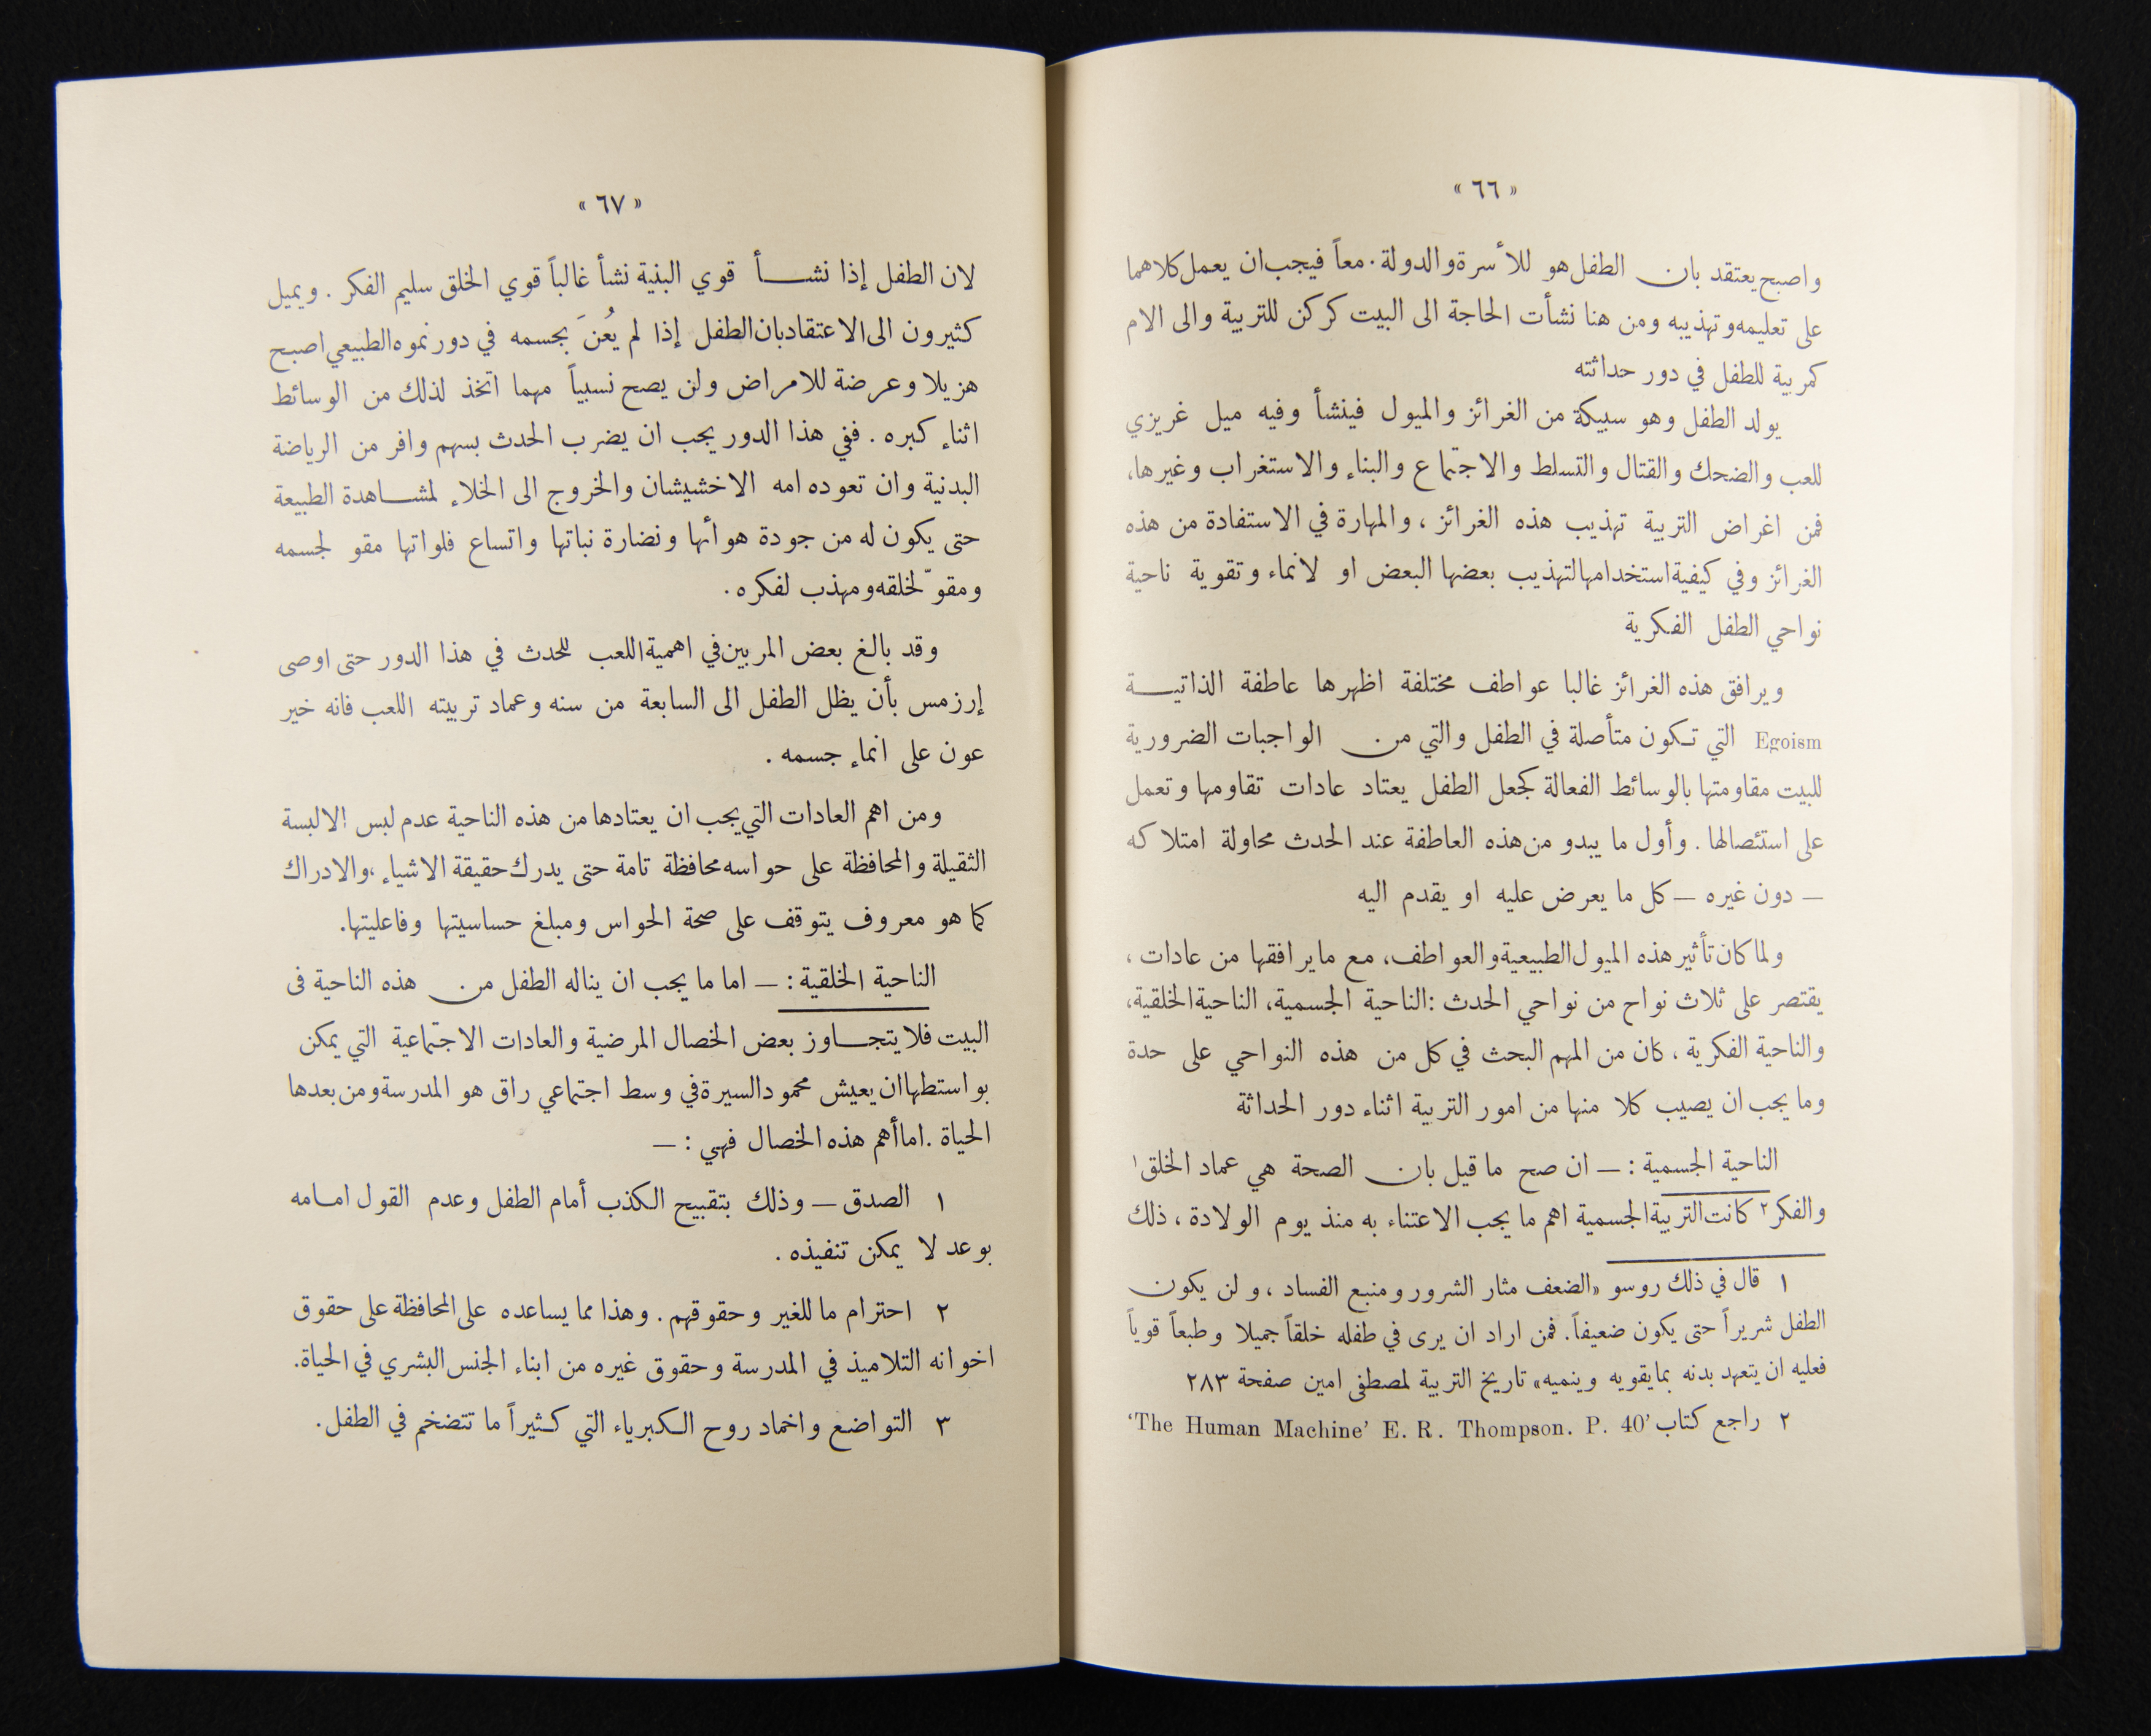 « ٦٦ »
واصبح يعتقد بان الطفل هو للأسرة والدولة. معاً فيجب ان يعمل كلاهما
على تعليمه وتهذيبه ومن هنا نشأت الحاجة الى البيت كركن للتربية والى الام
كمربية للطفل في دور حداثته
يولد الطفل وهو سبيكة من الغرائز والميول فينشأ وفيه ميل غريزي
للعب والضحك والقتال والتسلط والاجتماع والبناء والاستغراب وغيرها،
فمن اغراض التربية تهذيب هذه الغرائز ، والمهارة في الاستفادة من هذه
الغرائز وفي كيفية استخدامها لتهذيب بعضها البعض او لانماء وتقوية ناحية
نواحي الطفل الفكرية
ويرافق هذه الغرائز غالبا عواطف مختلفة اظهرها عاطفة الذاتيـــة
Egoism التي تكون متأصلة في الطفل والتي من الواجبات الضرورية
للبيت مقاومتها بالوسائط الفعالة كجعل الطفل يعتاد عادات تقاومها وتعمل
على استئصالها . وأول ما يبدو من هذه العاطفة عند الحدث محاولة امتلاكه
— دون غيره — كل ما يعرض عليه او يقدم اليه
ولما كان تأثير هذه الميول الطبيعية والعواطف، مع ما يرافقها من عادات ،
يقتصر على ثلاث نواح من نواحي الحدث : الناحية الجسمية، الناحية الخلقية،
والناحية الفكرية ، كان من المهم البحث في كل من هذه النواحي على حدة
وما يجب ان يصيب كلا منها من امور التربية اثناء دور الحداثة
الناحية الجسمية : — ان صح ما قيل بان الصحة هي عماد الخلق١
والفكر٢ كانت التربية الجسمية اهم ما يجب الاعتناء به منذ يوم الولادة ، ذلك
١ قال في ذلك روسو «الضعف مثار الشرور ومنبع الفساد ، ولن يكون
الطفل شريراً حتى يكون ضعيفاً. فمن اراد ان يرى في طفله خلقاً جميلا وطبعاً قوياً
فعليه ان يتعهد بدنه بما يقويه وينميه» تاريخ التربية لمصطفى امين صفحة ٢٨٣
٢ راجع كتاب ‘The Human Machine’ E. R. Thompson. P. 40’
« ٦٧ »
لان الطفل إذا نشـــأ قوي البنية نشأ غالباً قوي الخلق سليم الفكر . ويميل
كثيرون الى الاعتقاد بان الطفل إذا لم يُعنَ بجسمه في دور نموه الطبيعي اصبح
هزيلا وعرضة للامراض ولن يصح نسبياً مهما اتخذ لذلك من الوسائط
اثناء كبره . ففي هذا الدور يجب ان يضرب الحدث بسهم وافر من الرياضة
البدنية وان تعوده امه الاخشيشان والخروج الى الخلاء لمشـــاهدة الطبيعة
حتى يكون له من جودة هوائها ونضارة نباتها واتساع فلواتها مقو لجسمه
ومقوّ لخلقه ومهذب لفكره .
وقد بالغ بعض المربين في اهمية اللعب للحدث في هذا الدور حتى اوصى
إرزمس بأن يظل الطفل الى السابعة من سنه وعماد تربيته اللعب فانه خير
عون على انماء جسمه .
ومن اهم العادات التي يجب ان يعتادها من هذه الناحية عدم لبس الالبسة
الثقيلة والمحافظة على حواسه محافظة تامة حتى يدرك حقيقة الاشياء ، والادراك
كما هو معروف يتوقف على صحة الحواس ومبلغ حساسيتها وفاعليتها.
الناحية الخلقية : — اما ما يجب ان يناله الطفل من هذه الناحية في
البيت فلا يتجـــاوز بعض الخصال المرضية والعادات الاجتماعية التي يمكن
بواستطها ان يعيش محمود السيرة في وسط اجتماعي راق هو المدرسة ومن بعدها
الحياة . اما أهم هذه الخصال فهي : —
١ الصدق — وذلك بتقبيح الكذب أمام الطفل وعدم القول امامه
بوعد لا يمكن تنفيذه .
٢ احترام ما للغير وحقوقهم . وهذا مما يساعده على المحافظة على حقوق
اخوانه التلاميذ في المدرسة وحقوق غيره من ابناء الجنس البشري في الحياة.
٣ التواضع واخماد روح الكبرياء التي كثيراً ما تتضخم في الطفل .